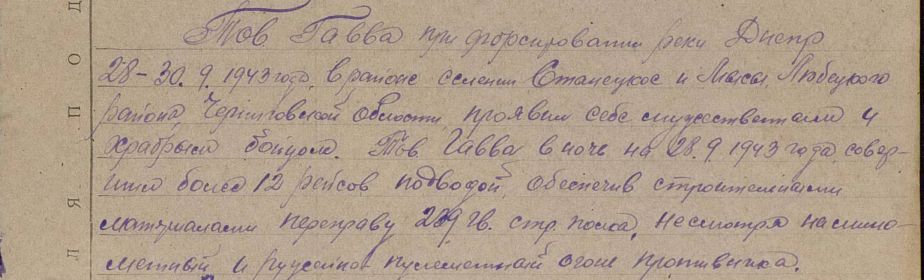 Тов. Гавва при форсировании реки Днепр
28-30.9.1943 года, в районе селении и Мысы, Любецкого
района, Черниговской области, проявил себя мужественным и
храбрым бойцом. Тов. Гавва в ночь на 28.9 1943 года, совер-
шил более 12 рейсов подводой, обеспечив строительными
материалами переправу 229 гв. стр. полка, несмотря на мино-
метный и ружейно-пулеметный огонь противника.
Д
О
П
Я
Л